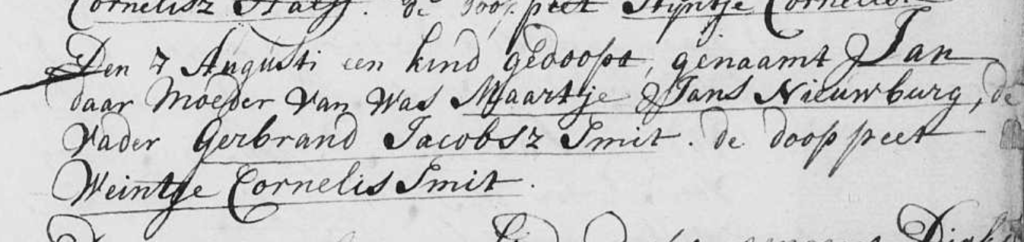 Cornelisz de doop peet Stijntje Cornelis.
Den 7 Augusti een kind gedoopt, genaamt Jan
daar Moeder van was Maartje Jans Nieuwburg, de
Vader Gerbrand Jacobsz Smit. de doop peet
Weintje Cornelis Smit.